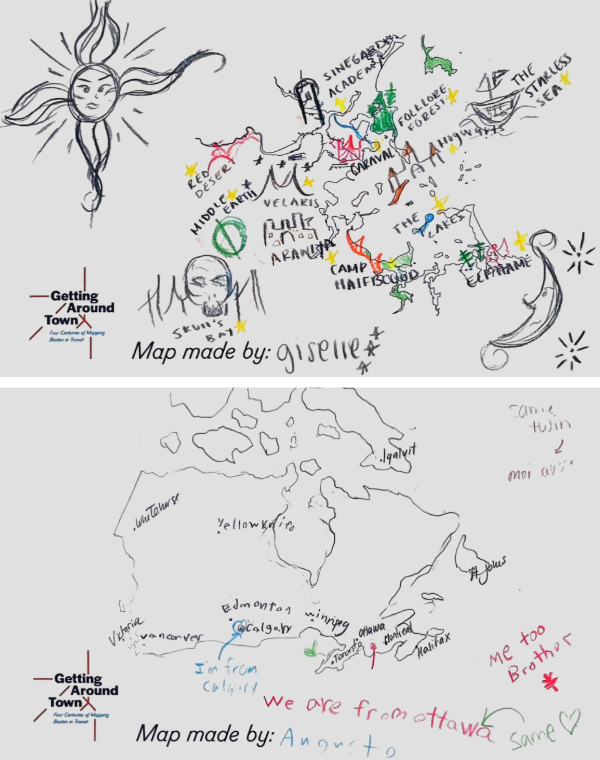 SINEGARD
ACADEMY
THE
STARLESS
SEA
FOLKLORE
FOREST
HOGWARTS
CARAVAL
RED
DESERT
MIDDLE
EARTH
VELARIS
THE
LAKES
CAMP
HALFBLOOD
ELFHAME
SKULL'S
BAY
Getting
Around
Town
Four Centuries of Mapping
Boston in Transit
Map made by: giselle
same
twin
moi aussi
.Iqaluit
.Whitehorse
Yellowknife
St Johns
Edmonton
Winnipeg
Calgary
Victoria
Vancouver
Ottawa
Montreal
Toronto
Halifax
I'm from
Calgary
Me too
Brother
We are from ottawa
Same
Getting
Around
Town
Four Centuries of Mapping
Boston in Transit
Map made by: Augusto